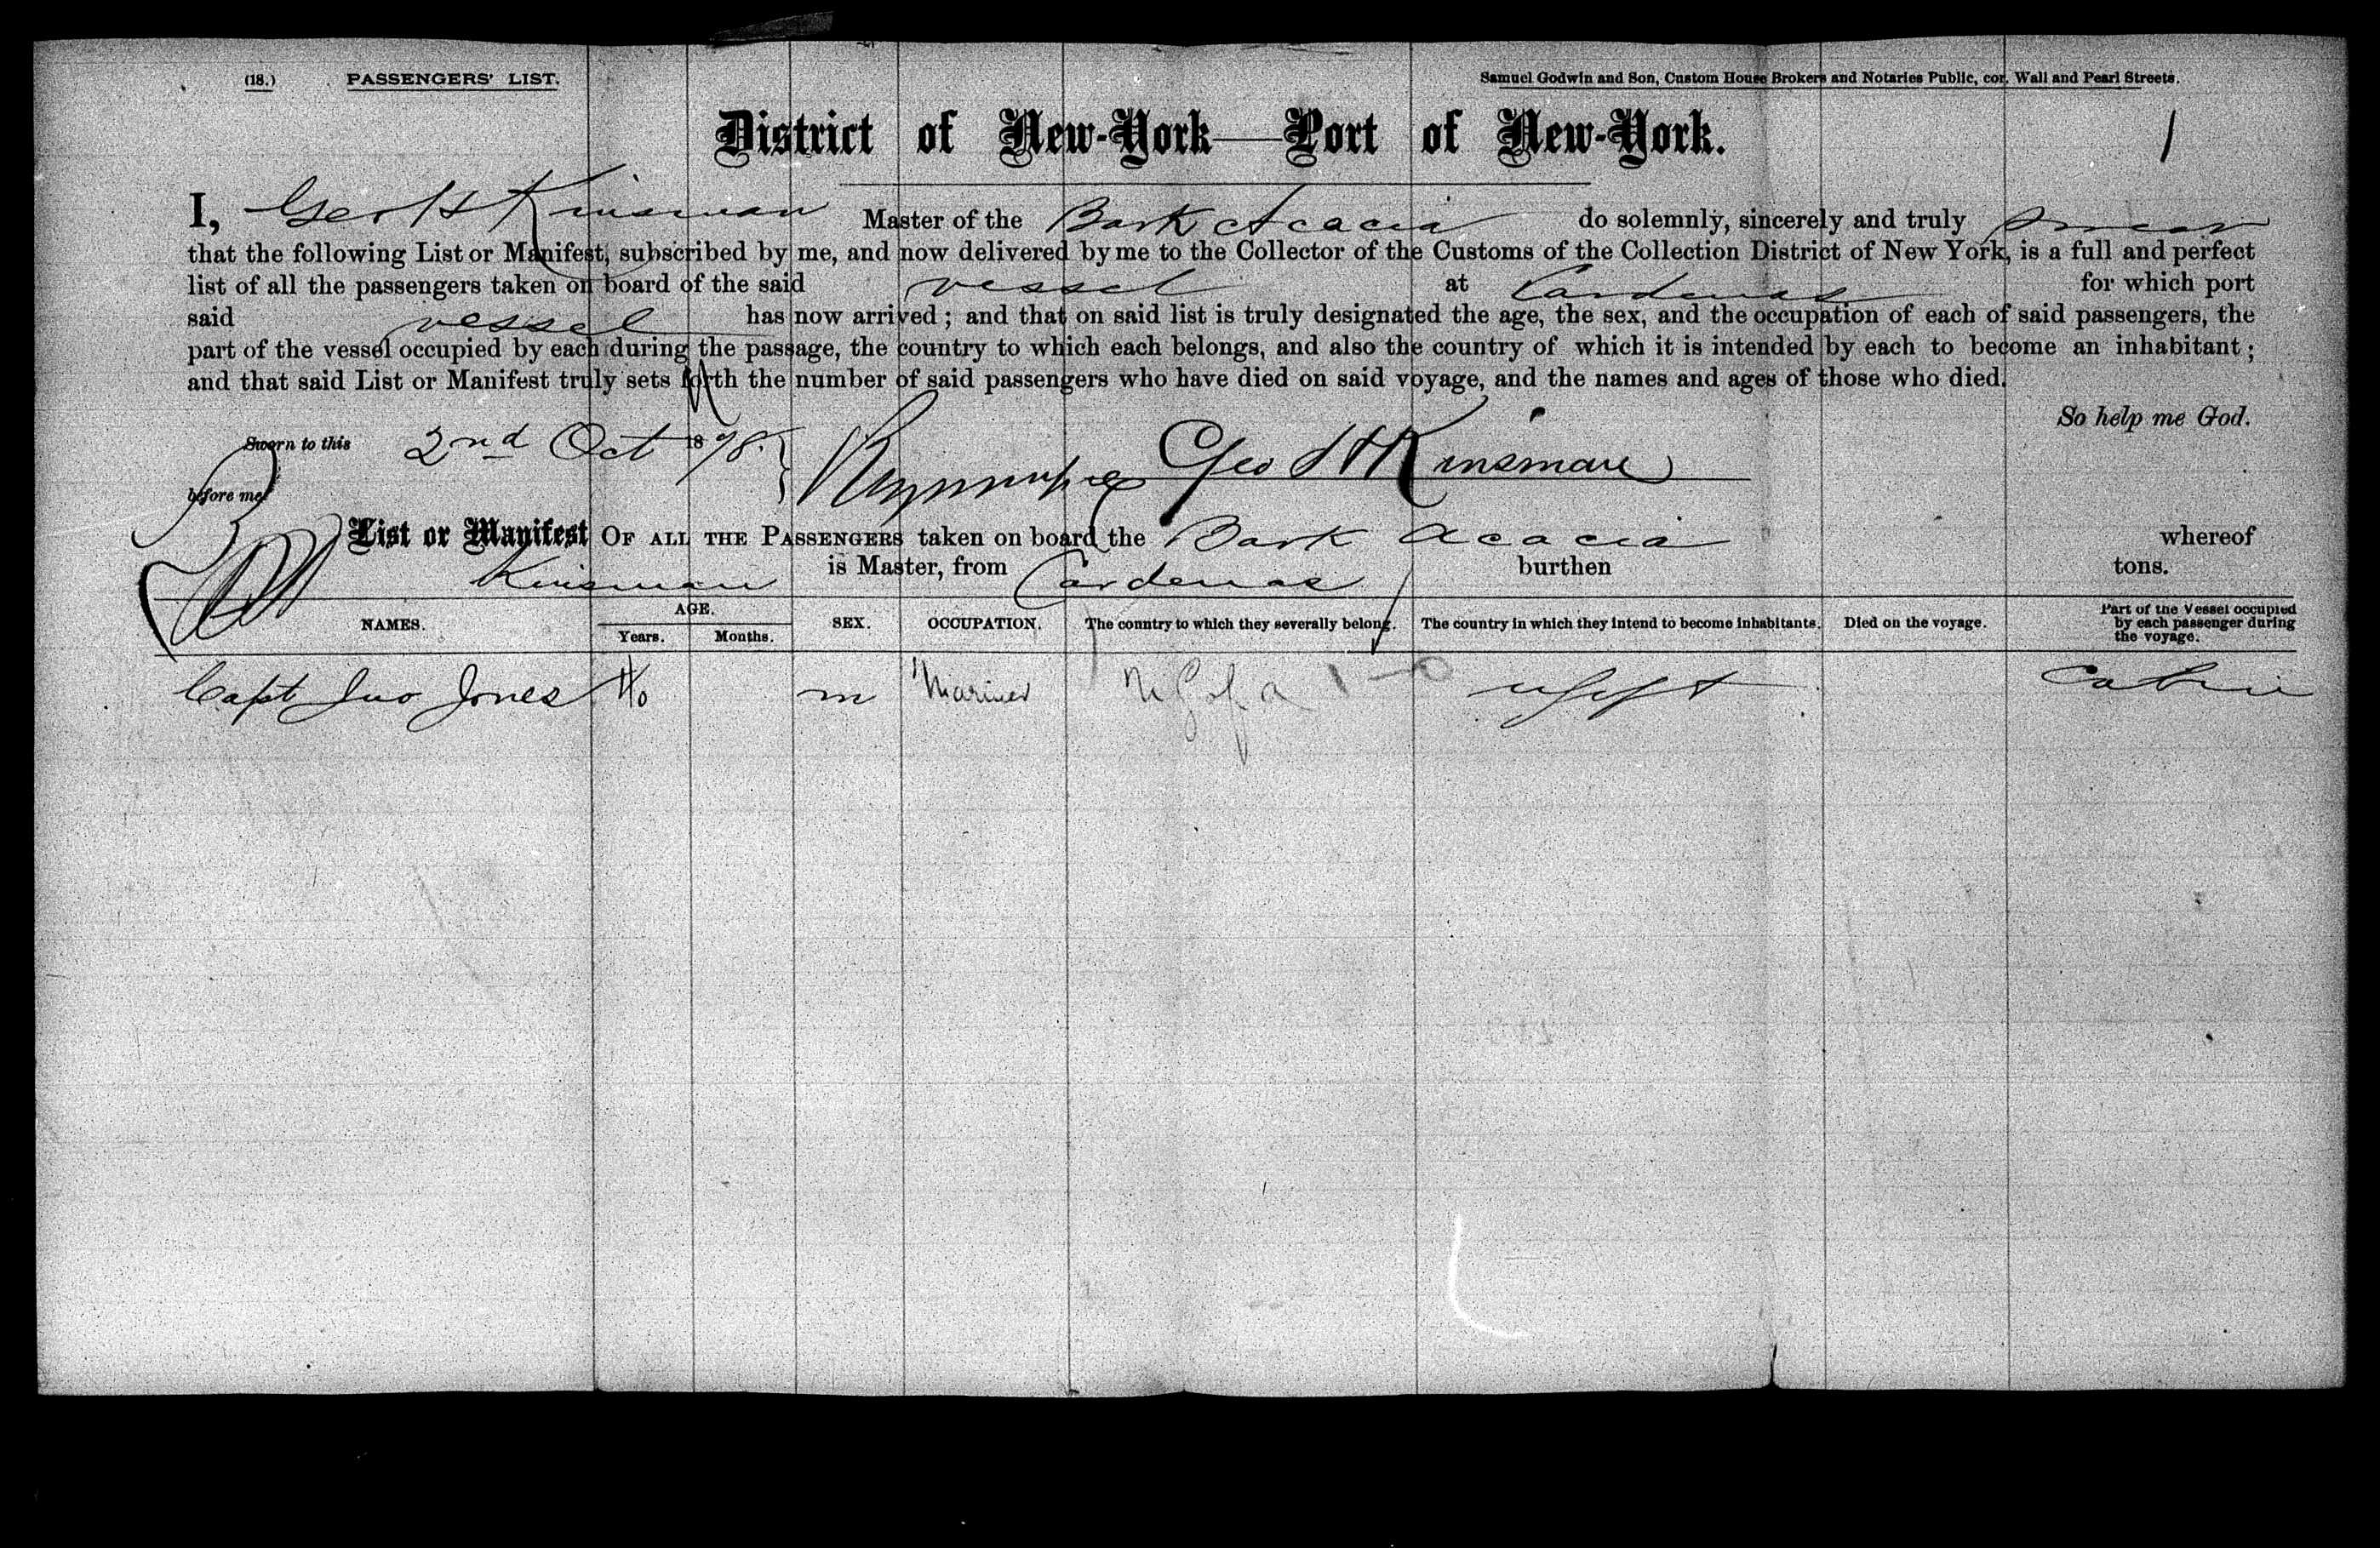 (18.) PASSENGERS' LIST.
Samuel Godwin and Son, Custom House Brokers and Notaries Public, cor. Wall and Pearl Streets.
District of New-York—Port of New-York.
1
I, Geo H Kinsman Master of the Bark Acacia do solemnly, sincerely and truly swear
that the following List or Manifest, subscribed by me, and now delivered by me to the Collector of the Customs of the Collection District of New York, is a full and perfect
list of all the passengers taken on board of the said vessel at Cardenas for which port
said vessel has now arrived; and that on said list is truly designated the age, the sex, and the occupation of each of said passengers, the
part of the vessel occupied by each during the passage, the country to which each belongs, and also the country of which it is intended by each to become an inhabitant;
and that said List or Manifest truly sets forth the number of said passengers who have died on said voyage, and the names and ages of those who died.
So help me God.
Sworn to this 2nd Oct 1878. Geo H Kinsman
before me
List or Manifest OF ALL THE PASSENGERS taken on board the Bark Acacia whereof
Kinsman is Master, from Cardenas burthen tons.
NAMES. AGE. Years. Months. SEX. OCCUPATION. The country to which they severally belong. The country in which they intend to become inhabitants. Died on the voyage. Part of the Vessel occupied by each passenger during the voyage.
Capt Jno Jones 40 m Mariner U S of a Cabin